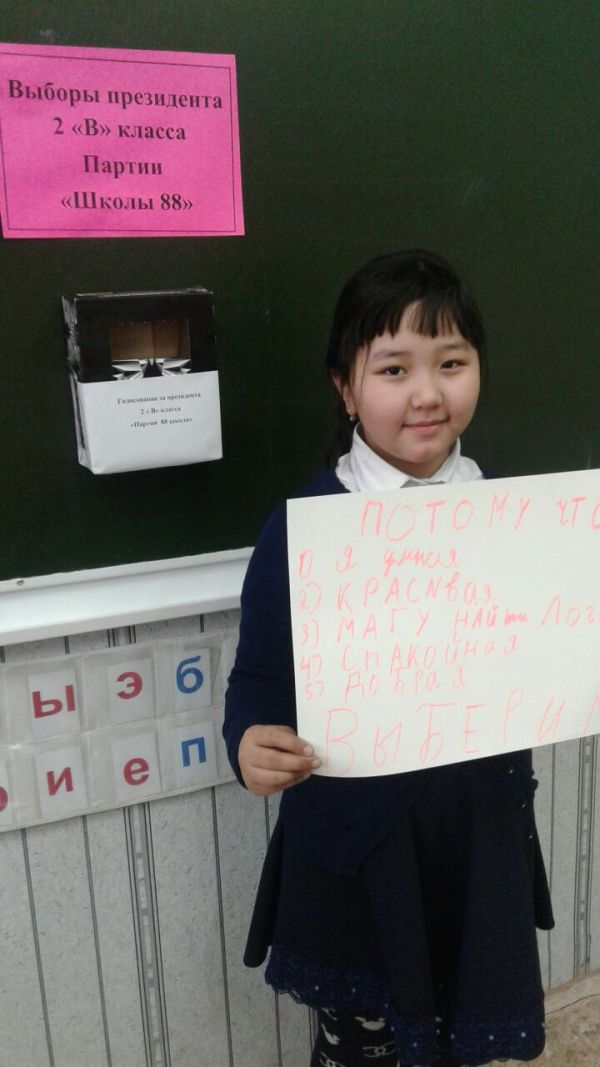 Выборы президента
2 «В» класса
Партии
«Школы 88»
Голосование за президента
2 « В» класса
«Партии 88 школы»
ПОТОМУ ЧТО
1) Я умная
2) КРАСИвая
3) МАГУ НАЙти
4) СПАКОЙНАЯ
5) ДОБРАЯ
Ы Э Б
И Е П